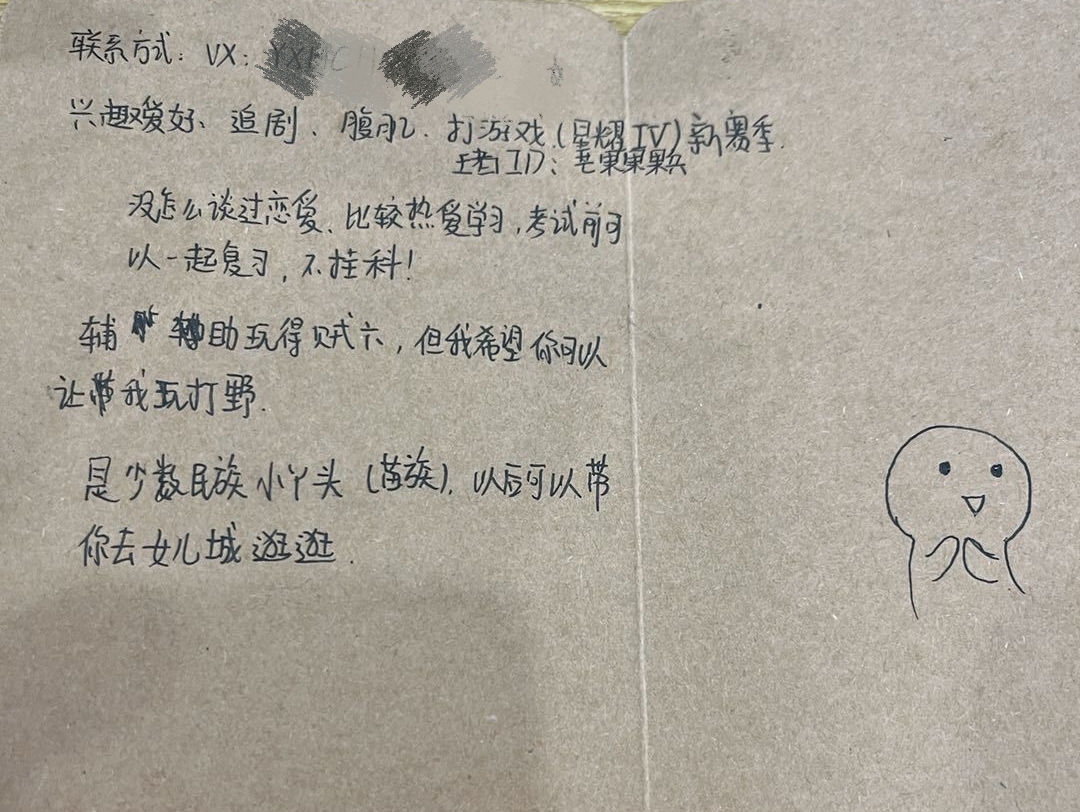 联系方式：VX：
兴趣爱好、追剧、腹肌、打游戏（星耀IV）新赛季.
王者ID：芒果果果兵
没怎么谈过恋爱、比较热爱学习，考试前可
以一起复习，不挂科！
辅助玩得贼六，但我希望你可以
让带我玩打野.
是少数民族小丫头（苗族）, 以后可以带
你去女儿城逛逛.